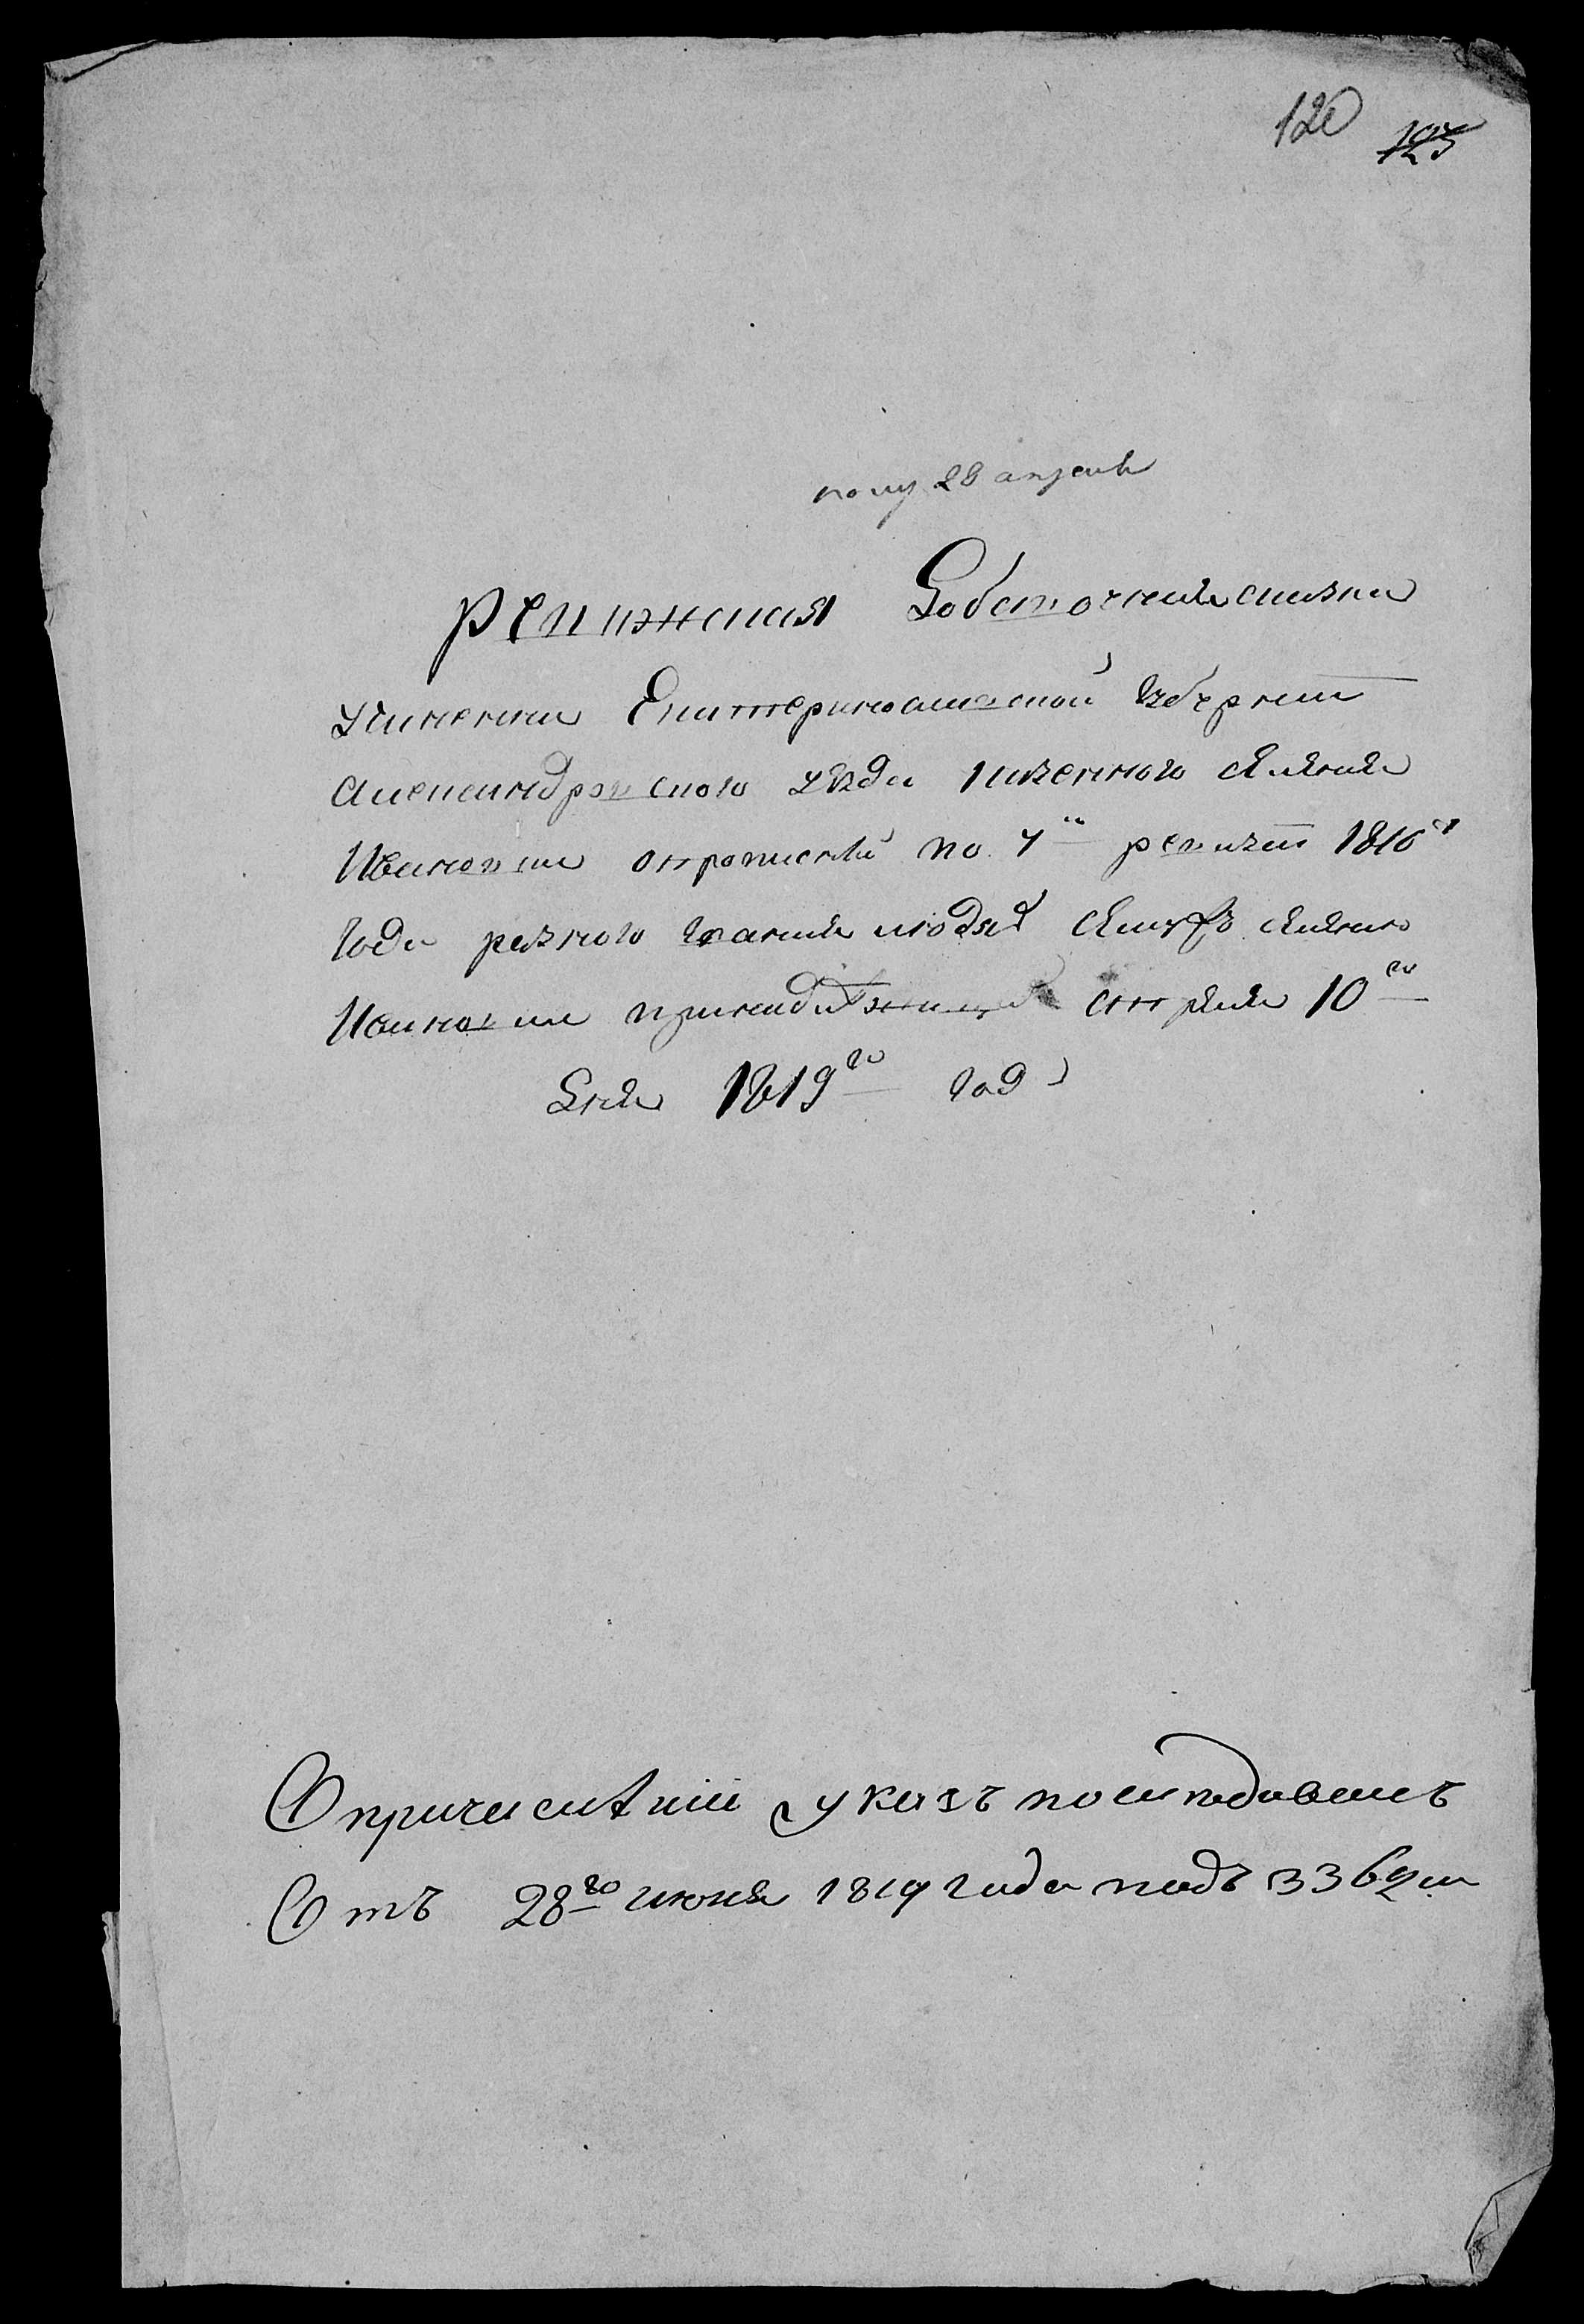 120 125
полу 28 апреля
ревижская Добавочная сказка
учинена Екатеринослаской Губернии
Александровского уезда казенного селения
Ивановки о по 7й ревизии 1816
года разного звания людей селения
Ивановки апреля 10го
дня 1819го год
О причислении указъ последовалъ
Отъ 28го июня 1819 года подъ